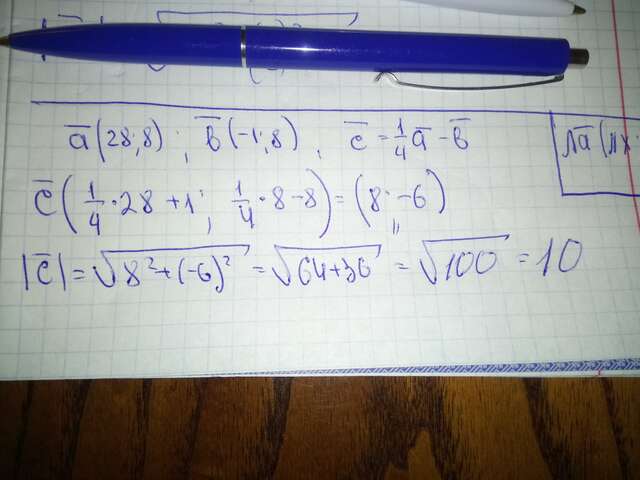 a̅(28; 8), b̅(-1; 8), c̅ = 1/4 a̅ - b̅
c̅(1/4 · 28 + 1; 1/4 · 8 - 8) = (8; -6)
|c̅| = √8² + (-6)² = √64+36 = √100 = 10